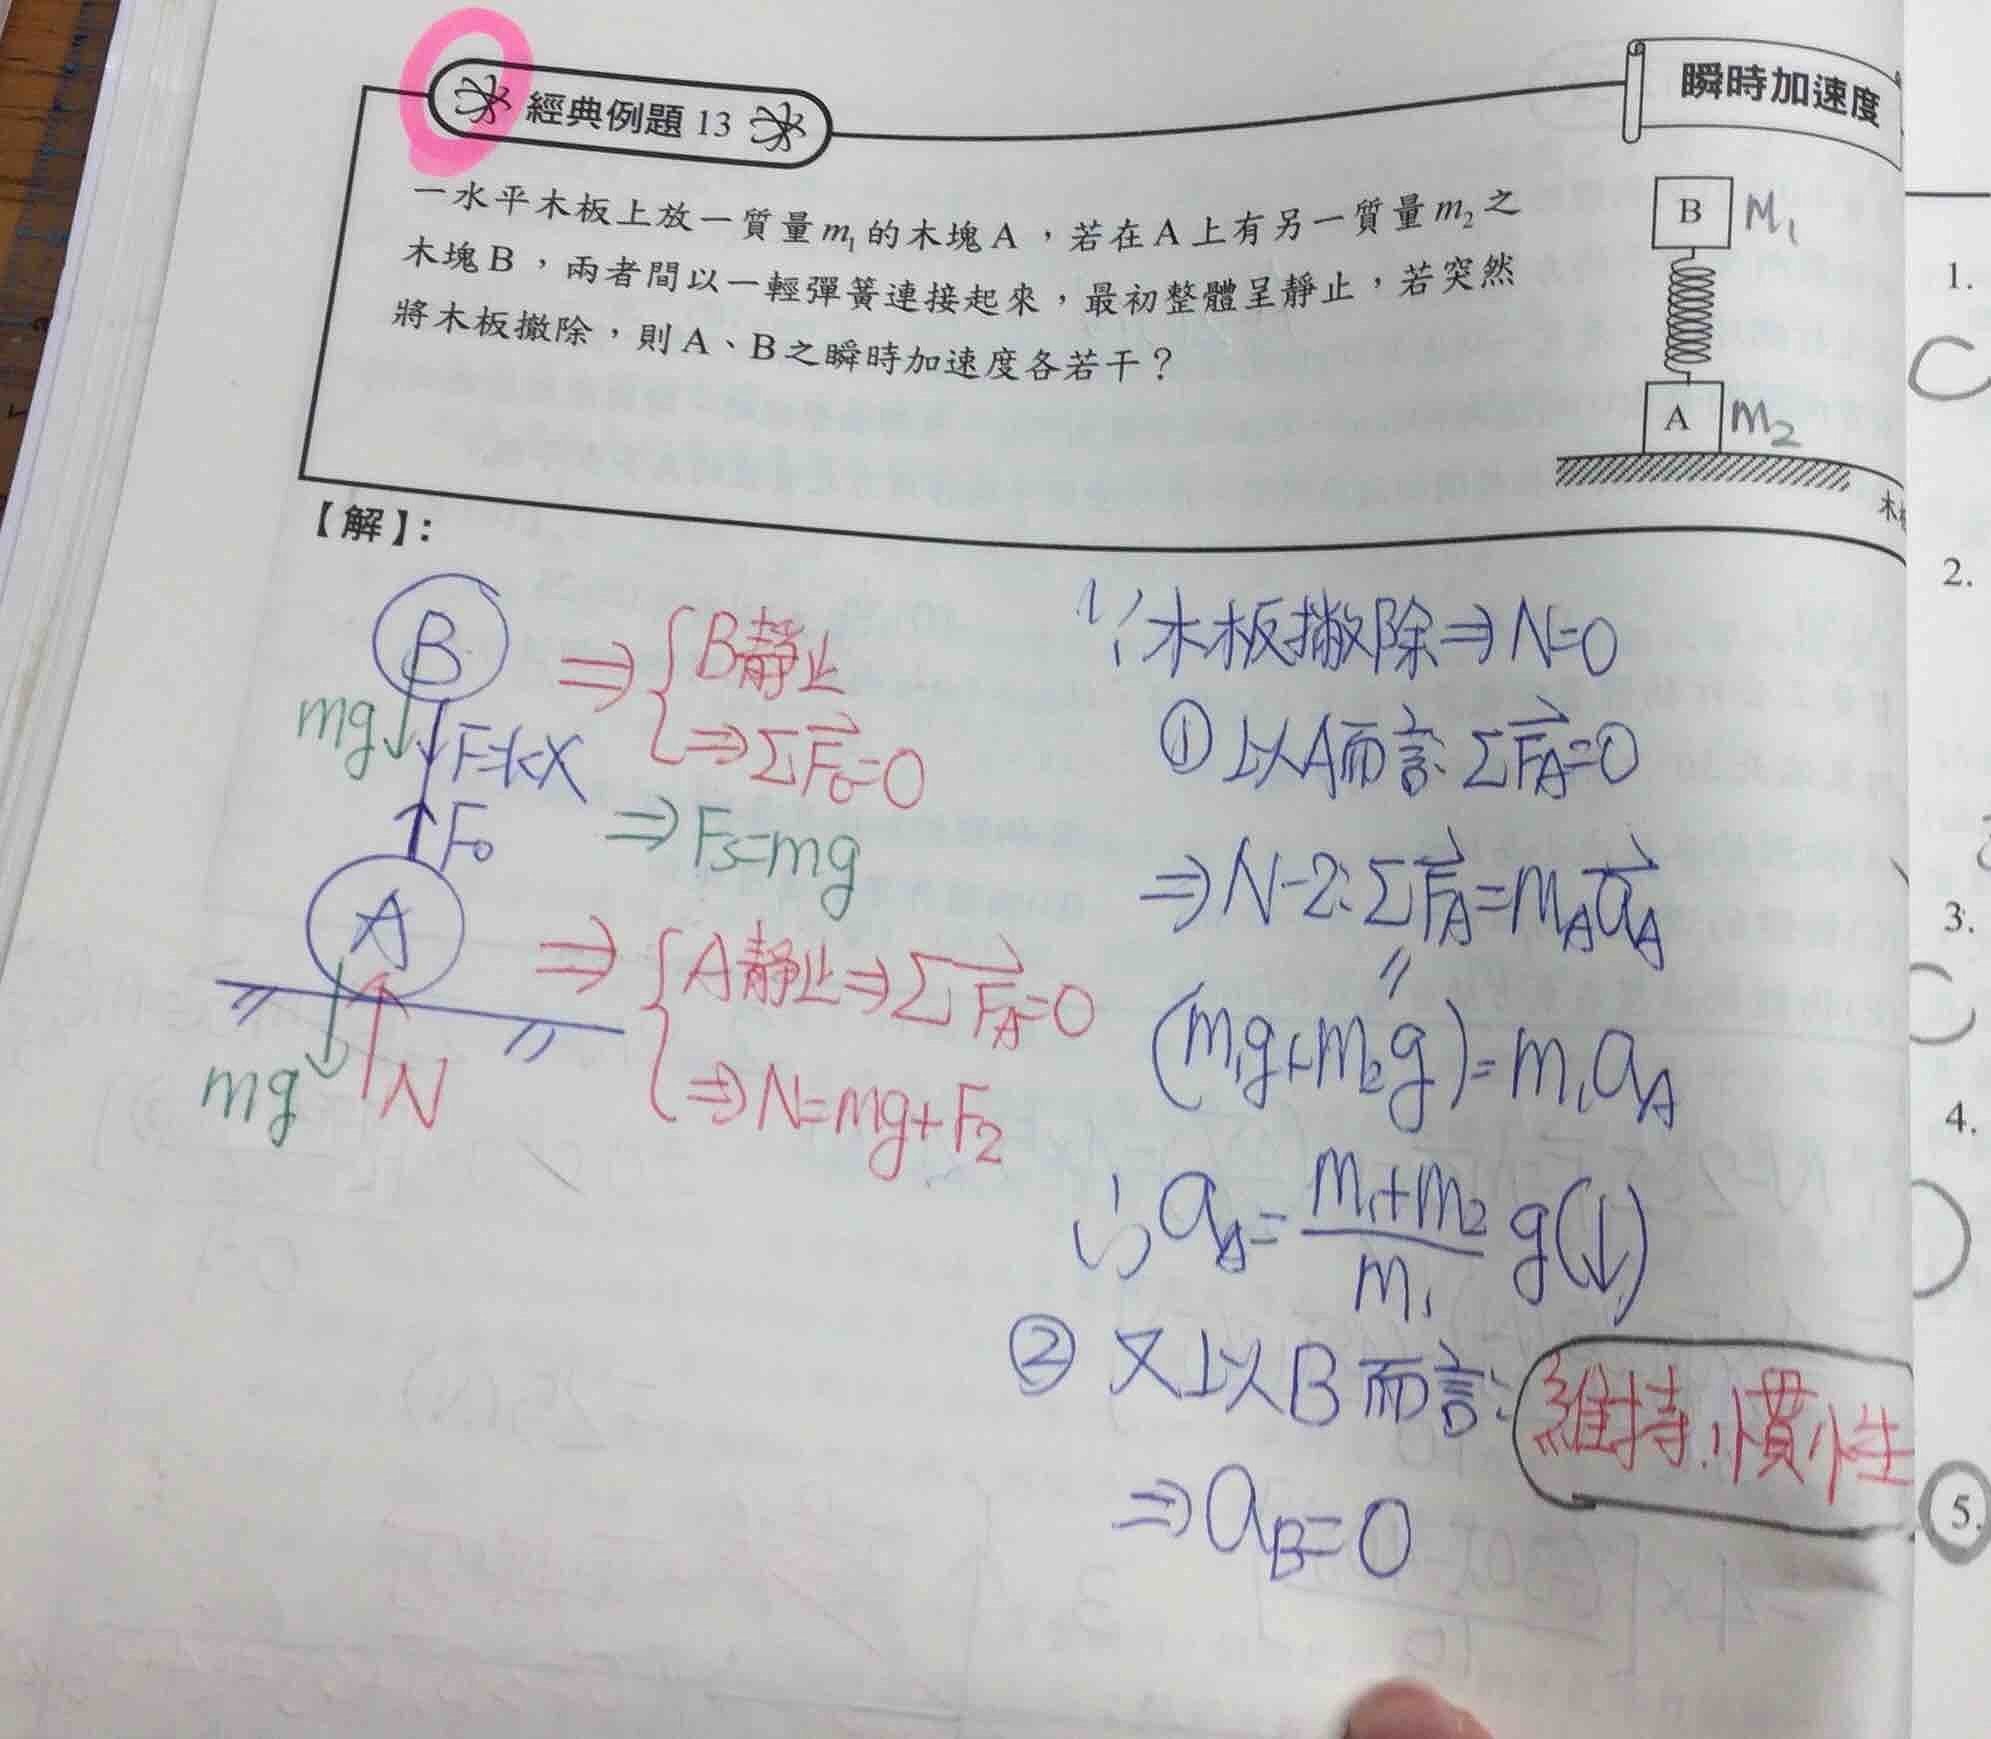 經典例題 13
瞬時加速度
一水平木板上放一質量m₁的木塊A，若在A上有另一質量m₂之
木塊B，兩者間以一輕彈簧連接起來，最初整體呈靜止，若突然
將木板撤除，則A、B之瞬時加速度各若干？
B m₁
A m₂
木
【解】：
B
mg
F=kx
F₀
A
mg
N
⇒ B靜止
⇒ΣF⃗₀=0
⇒ Fs=mg
⇒ A靜止⇒ΣF⃗A=0
⇒N=mg+F₂
∵木板撤除⇒N=0
① 以A而言: ΣF⃗A=0
⇒N-2: ΣF⃗A=mAa⃗A
〃
(m₁g+m₂g)=m₁aA
∴aA=(m₁+m₂)/m₁ g(↓)
② 又以B而言: 維持慣性
⇒aB=0
1.
2.
3.
4.
5.